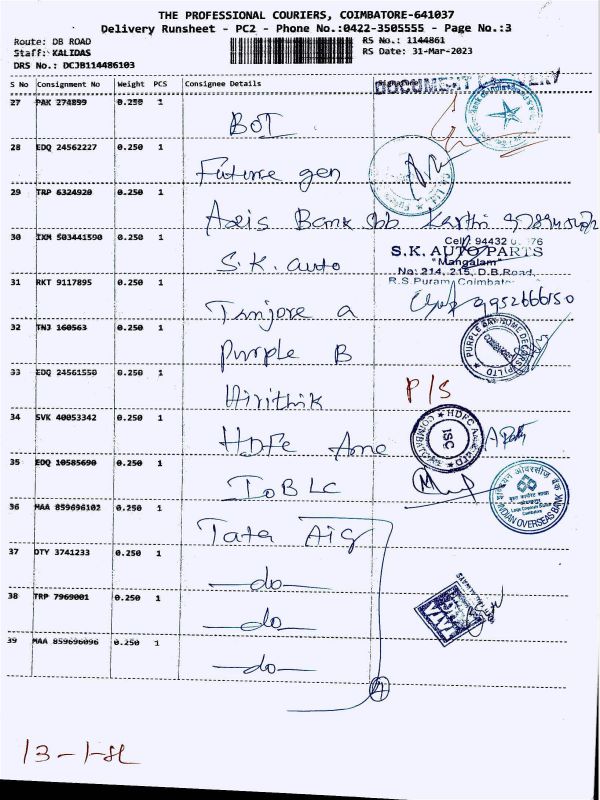 THE PROFESSIONAL COURIERS, COIMBATORE-641037
Delivery Runsheet - PC2 - Phone No.:0422-3505555 - Page No.:3
Route: DB ROAD RS No.: 1144861
Staff: KALIDAS RS Date: 31-Mar-2023
DRS No.: DCJB114486103
S No Consignment No Weight PCS Consignee Details
DOCUMENT
27 PAK 274899 0.250 1
BOI
28 EDQ 24562227 0.250 1
Future gen
29 TRP 6324920 0.250 1
Axis Bank
30 IXM 503441590 0.250 1
S.K. auto
Cell: 94432
S.K. AUTO PARTS
"Mangalam"
No: 214, 215, D.B.Road,
R.S.Puram, Coimbatore
31 RKT 9117895 0.250 1
Tanjore a 9952666150
32 TNJ 160563 0.250 1
Purple B
PURPLE BAY HOME DECORS (P) LTD
33 EDQ 24561550 0.250 1
Hirithik P/S
34 SVK 40053342 0.250 1
HDFC Amc
HDFC
ISC
35 EDQ 10585690 0.250 1
IOB LC
INDIAN OVERSEAS BANK
36 MAA 859696102 0.250 1
Tata Aig
37 DTY 3741233 0.250 1
-do-
38 TRP 7969001 0.250 1
-do-
TATA
39 MAA 859696096 0.250 1
-do-
4
13-1-SL